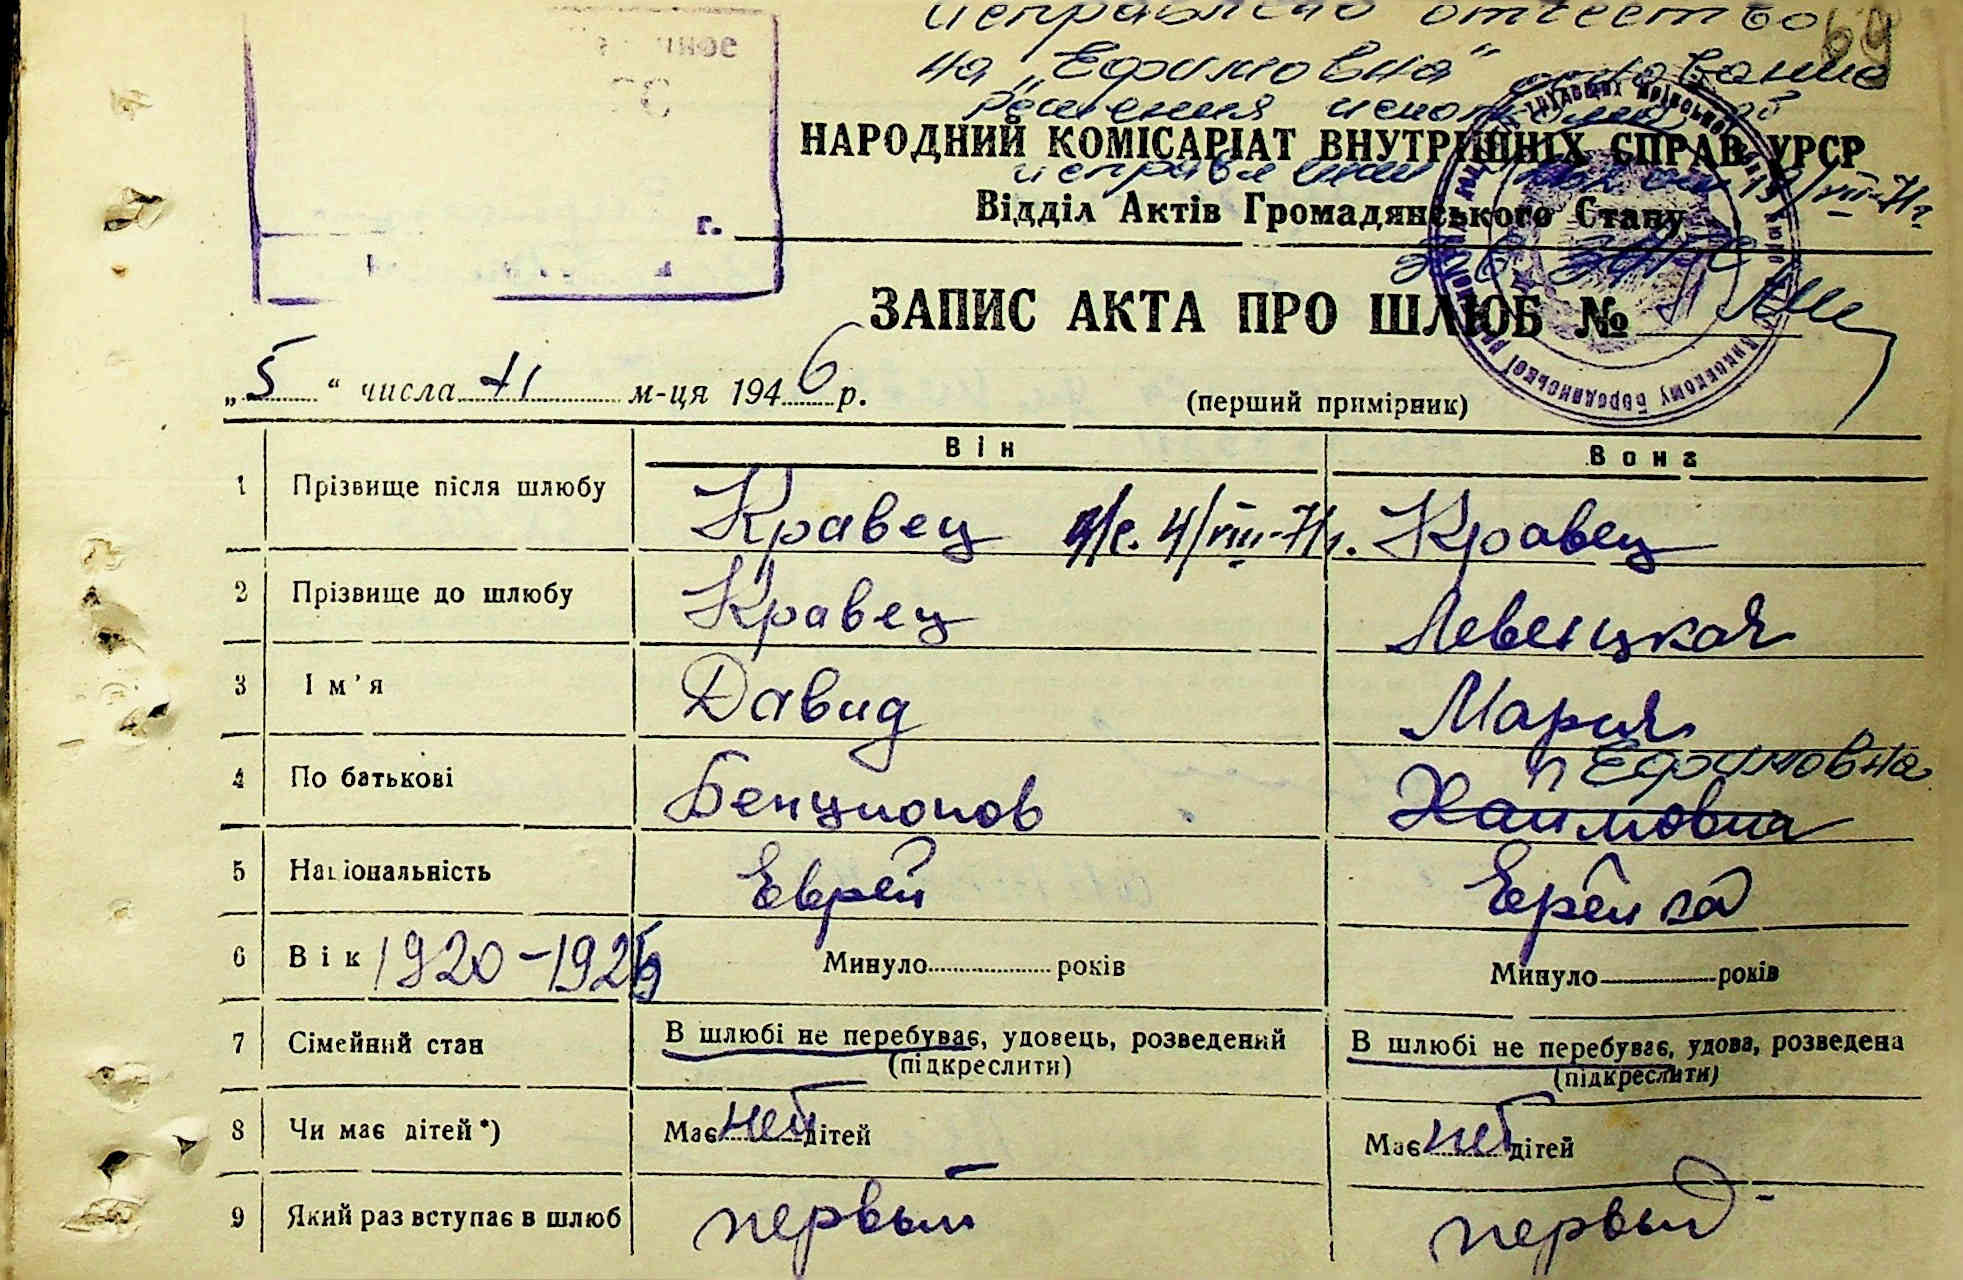 исправлено отчество
69
на „Ефимовна"
решения
НАРОДНИЙ КОМІСАРІАТ ВНУТРІШНІХ СПРАВ УРСР
Відділ Актів Громадянського Стану
г.
ЗАПИС АКТА ПРО ШЛЮБ №
„5" числа 11 м-ця 1946 р.
(перший примірник)
Він Вона
1 Прізвище після шлюбу Кравец 4/VIII-71г. Кравец
2 Прізвище до шлюбу Кравец Левецкая
3 Ім'я Давид Мария
Ефимовна
4 По батькові Бенционов Хаимовна
5 Національність Еврей
6 Вік 1920-192 Минуло років Минуло років
7 Сімейний стан В шлюбі не перебуває, удовець, розведений В шлюбі не перебуває, удова, розведена
(підкреслити) (підкреслити)
8 Чи має дітей*) Має нет дітей Має нет дітей
9 Який раз вступає в шлюб первый первый